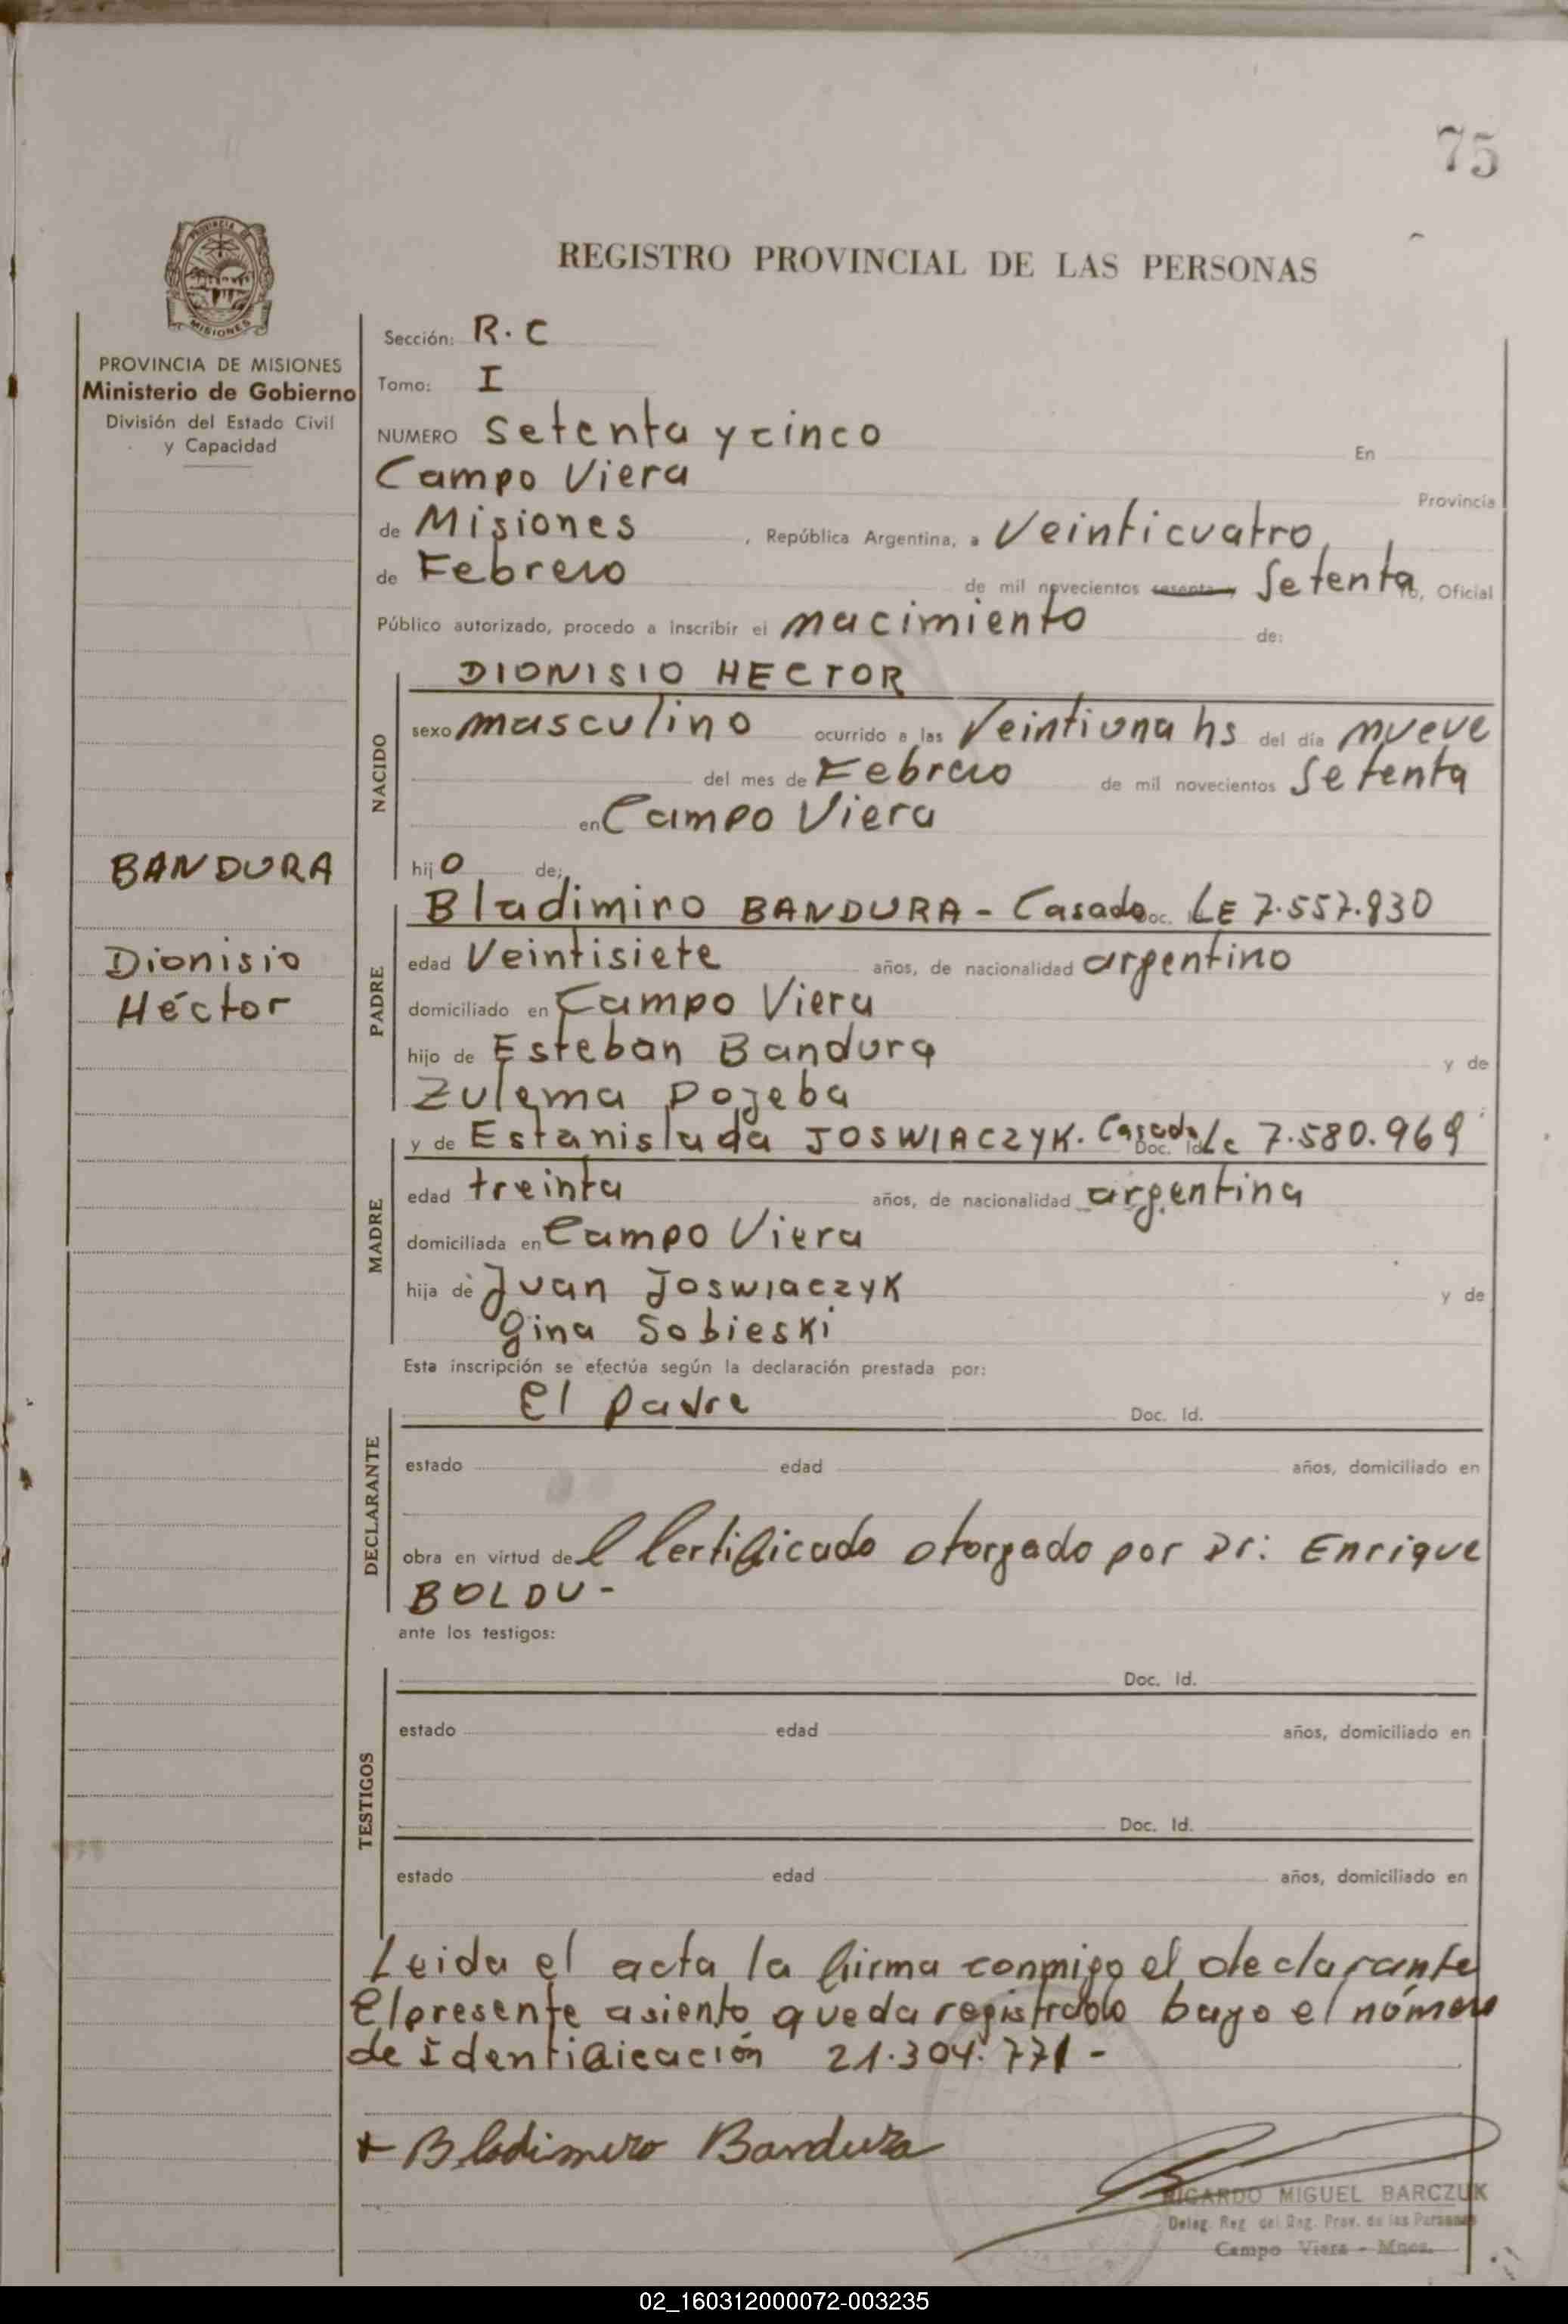 75
REGISTRO PROVINCIAL DE LAS PERSONAS
PROVINCIA DE MISIONES
PROVINCIA DE MISIONES
Ministerio de Gobierno
División del Estado Civil
y Capacidad
Sección: R. C
Tomo: I
NUMERO Setenta y cinco En
Campo Viera Provincia
de Misiones, República Argentina, a Veinticuatro
de Febrero de mil novecientos sesenta y Setenta, Oficial
Público autorizado, procedo a inscribir el nacimiento de:
NACIDO
DIONISIO HECTOR
sexo masculino ocurrido a las Veintiuna hs del día nueve
del mes de Febrero de mil novecientos Setenta
en Campo Viera
hijo de:
BANDURA
Dionisio
Héctor
PADRE
Bladimiro BANDURA - Casado Doc. LE 7.557.830
edad Veintisiete años, de nacionalidad argentino
domiciliado en Campo Viera
hijo de Esteban Bandura y de
Zulema Dojeba
MADRE
y de Estanislada JOSWIACZYK. Casada Doc. Id. Le 7.580.969
edad treinta años, de nacionalidad argentina
domiciliada en Campo Viera
hija de Juan Joswiaczyk y de
Gina Sobieski
Esta inscripción se efectúa según la declaración prestada por:
DECLARANTE
El padre Doc. Id.
estado edad años, domiciliado en
obra en virtud del Certificado otorgado por Dr: Enrique
BOLDU -
ante los testigos:
TESTIGOS
Doc. Id.
estado edad años, domiciliado en
Doc. Id.
estado edad años, domiciliado en
Leida el acta la firma conmigo el declarante
El presente asiento queda registrado bajo el número
de Identificación 21.304.771 -
+ Bladimiro Bandura
RICARDO MIGUEL BARCZUK
Deleg. Reg. del Reg. Prov. de las Personas
Campo Viera - Mnes.
02_160312000072-003235